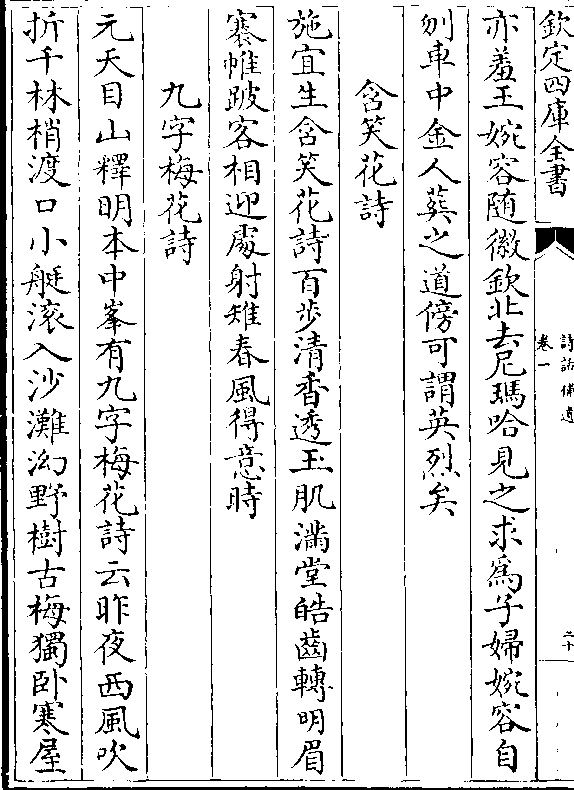 欽定四庫全書
詩話補遺
卷一
二十
亦羞王婉容随徽欽北去尼瑪哈見之求為子婦婉容自
刎車中金人葬之道傍可謂英烈矣
含笑花詩
施宜生含笑花詩百步清香透玉肌滿堂皓齒轉明眉
褰帷跛客相迎處射雉春風得意時
九字梅花詩
元天目山釋明本中峯有九字梅花詩云昨夜西風吹
折千林梢渡口小艇滚入沙灘㘭野樹古梅獨卧寒屋